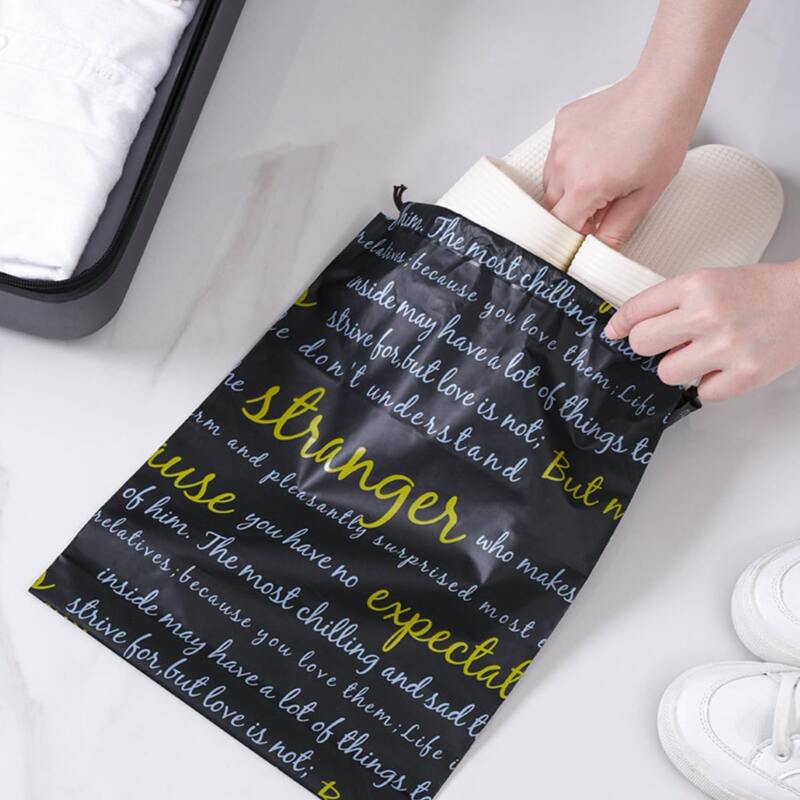 him. The most chilling
relatives; because you love them; Life
inside may have a lot of things to
strive for, but love is not;
don't understand But
stranger who makes
and pleasantly surprised most
you have no
of him. The most chilling and sad
relatives; because you love them; Life
inside may have a lot of things to
strive for, but love is not;